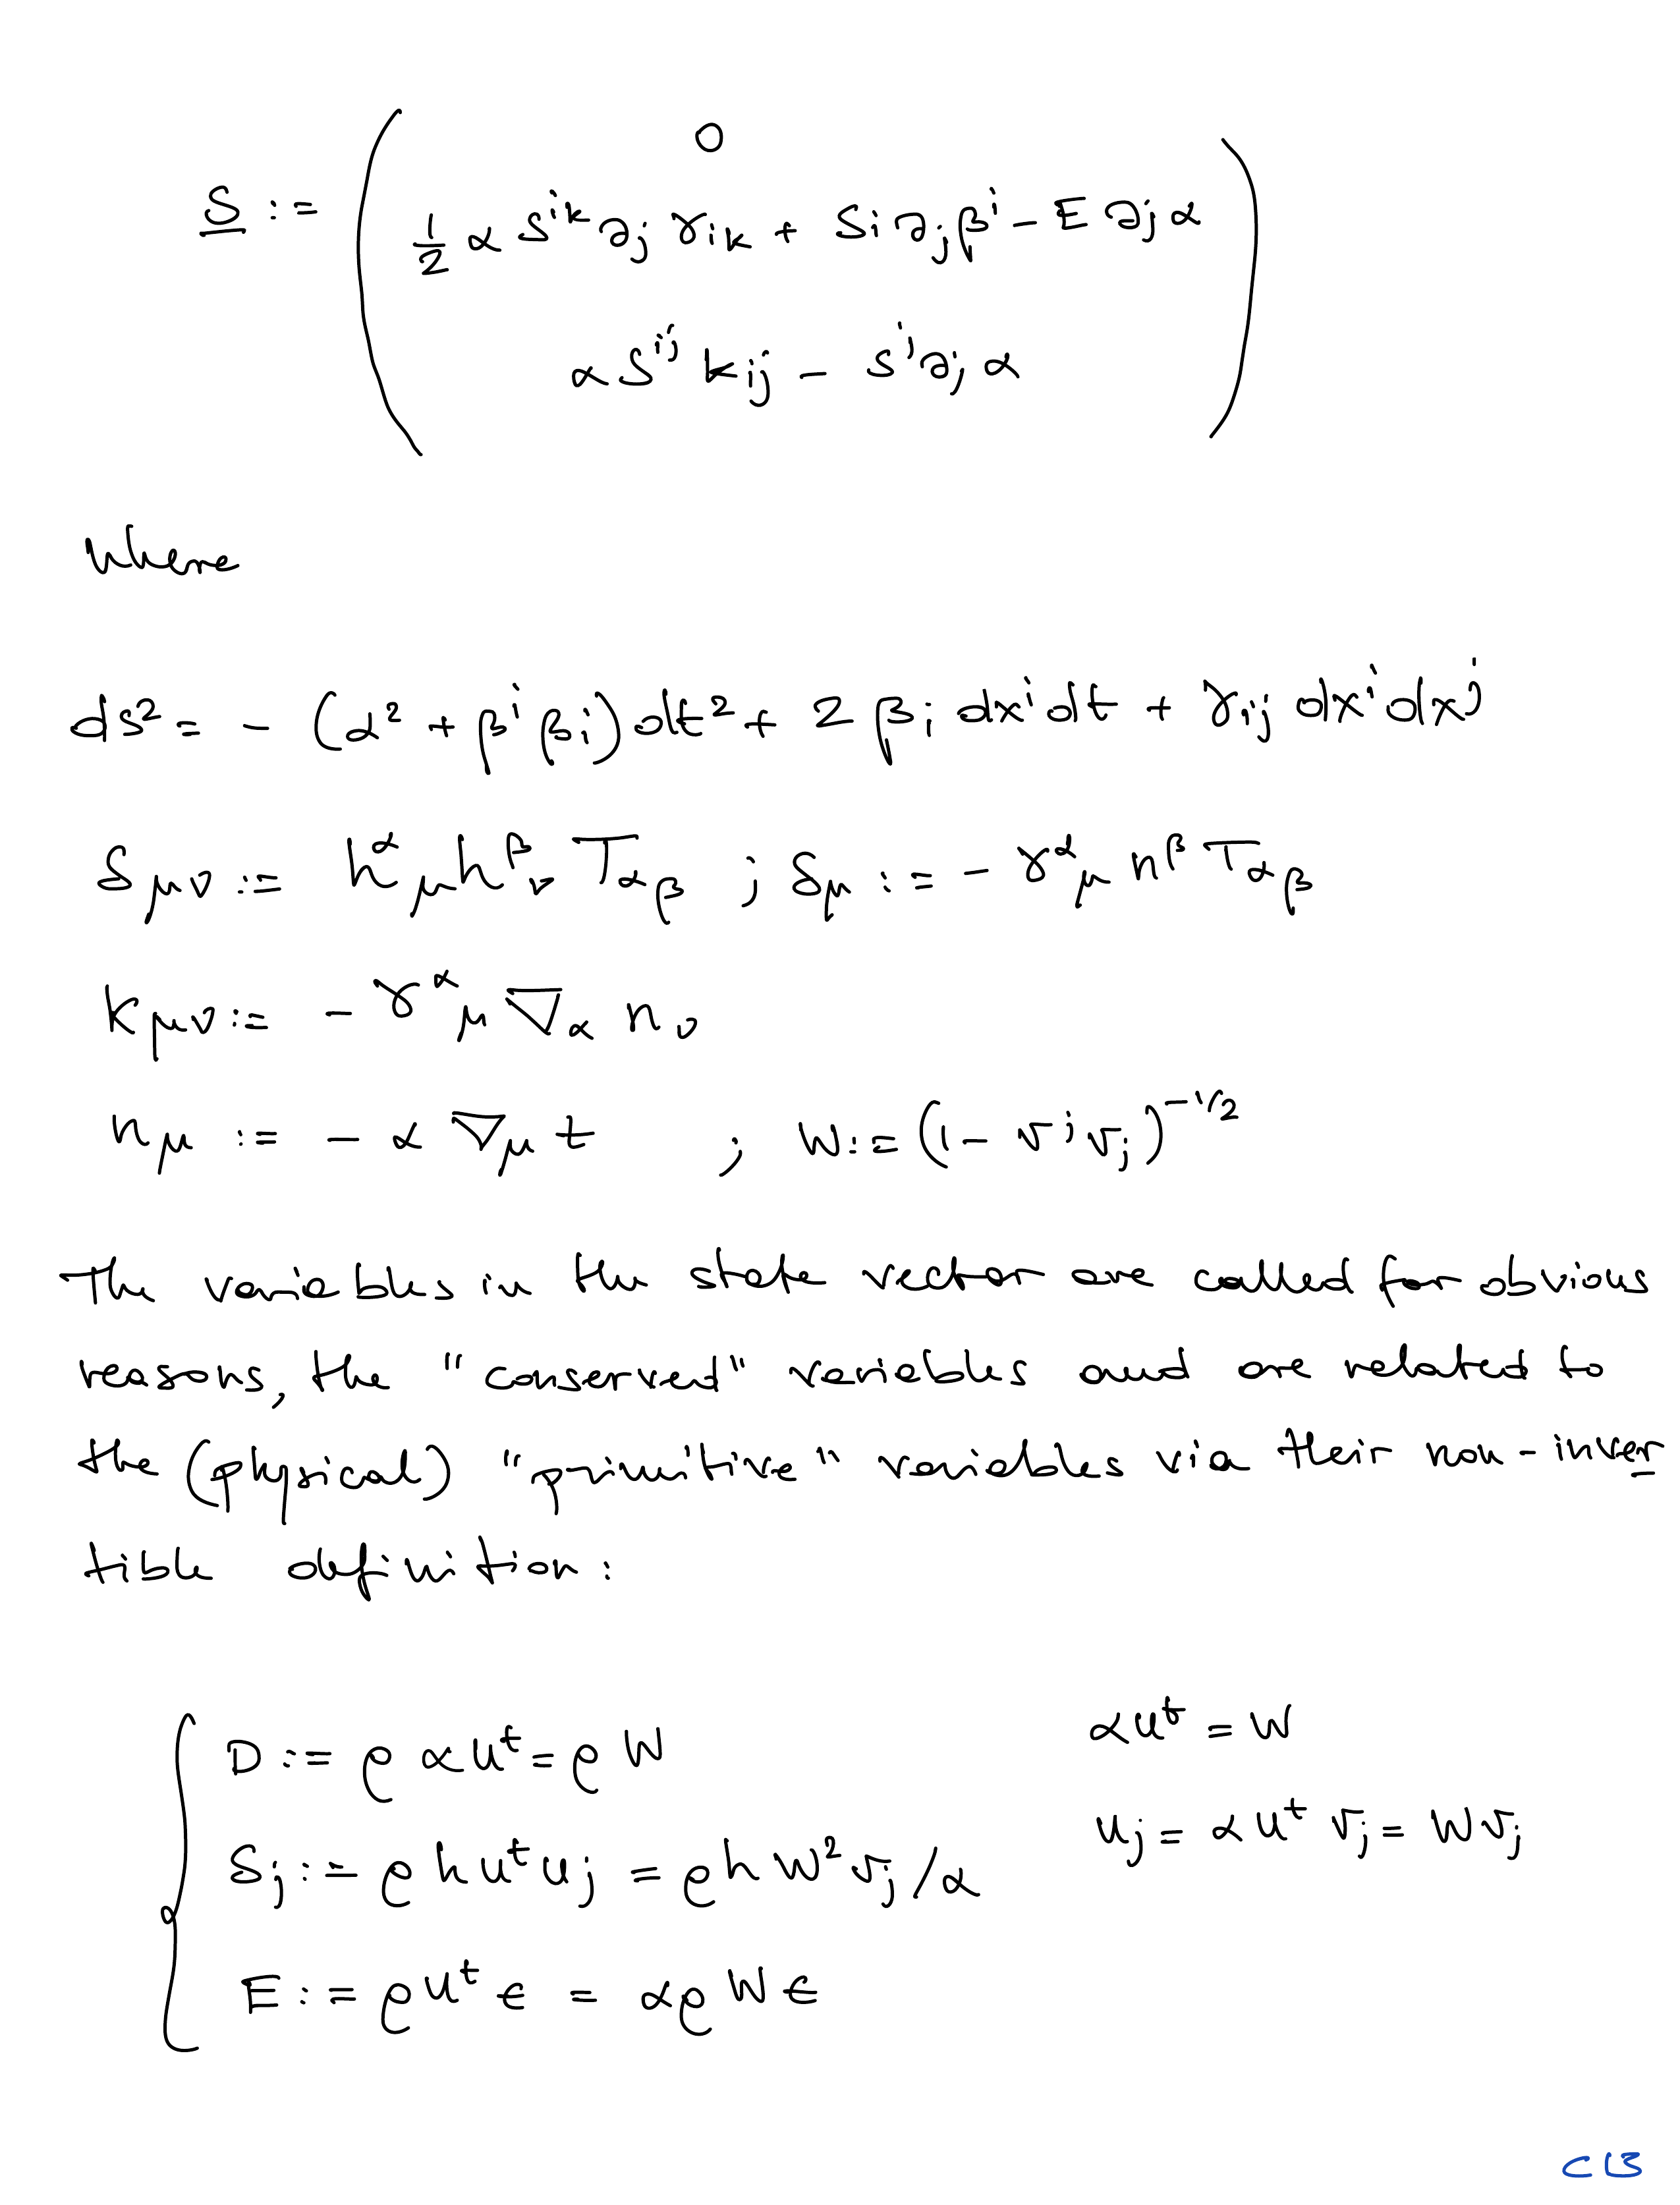 S := ( 0
½ α S^{ik} ∂_j γ_{ik} + S_i ∂_j β^i − E ∂_j α
α S^{ij} K_{ij} − S^j ∂_j α )
where
ds² = − (α² + β^i β_i) dt² + 2 β_i dx^i dt + γ_{ij} dx^i dx^j
S_{μν} := h^α_μ h^β_ν T_{αβ} ; S_μ := − γ^α_μ n^β T_{αβ}
K_{μν} := − γ^α_μ ∇_α n_ν
n_μ := − α ∇_μ t ; W := (1 − v^j v_j)^{−1/2}
The variables in the state vector are called for obvious
reasons, the "conserved" variables and are related to
the (physical) "primitive" variables via their non-inver
tible definition:
D := ρ α u^t = ρ W αu^t = W
S_j := ρ h u^t u_j = ρ h W² v_j / α u_j = α u^t v_j = W v_j
E := ρ u^t ϵ = α ρ W ϵ